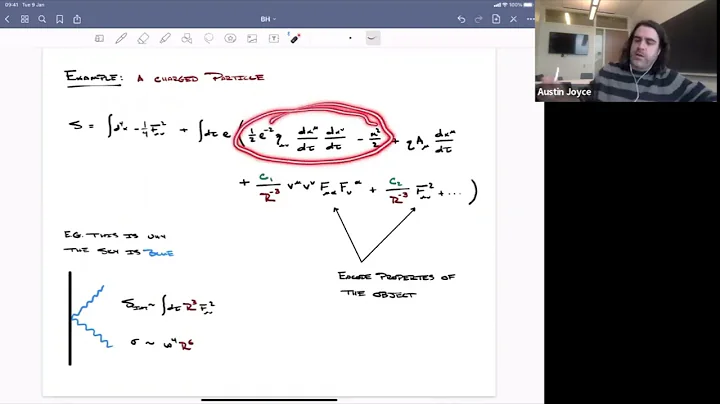 09:41 Tue 9 Jan
100%
BH
EXAMPLE: A CHARGED PARTICLE
S = ∫d⁴x -1/4 F²_μν + ∫dτ e ( 1/2 e⁻² η_μν dx^μ/dτ dx^ν/dτ - m²/2 + q A_μ dx^μ/dτ
+ C₁/R⁻³ v^μ v^ν F_μα F_ν^α + C₂/R⁻³ F²_μν + ··· )
E.G. THIS IS WHY
THE SKY IS BLUE
ENCODE PROPERTIES OF
THE OBJECT
S_INT ~ ∫dτ R³ F²_μν
σ ~ ω⁴ R⁶
Austin Joyce